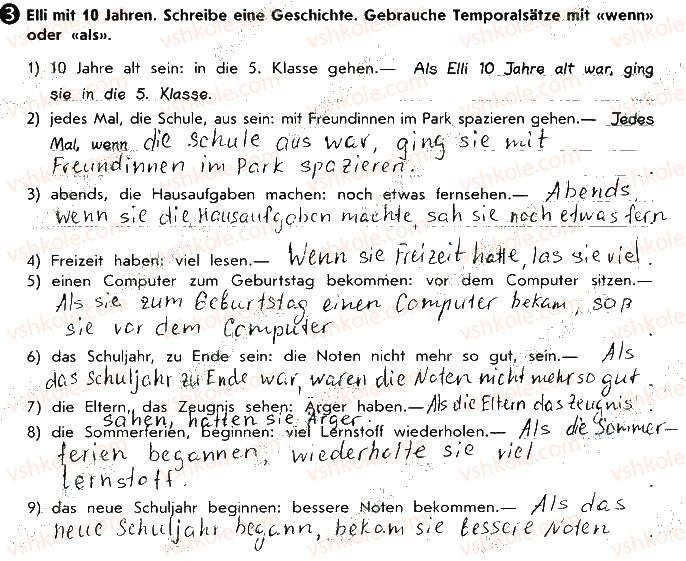 3 Elli mit 10 Jahren. Schreibe eine Geschichte. Gebrauche Temporalsätze mit «wenn»
oder «als».
1) 10 Jahre alt sein: in die 5. Klasse gehen.— Als Elli 10 Jahre alt war, ging
sie in die 5. Klasse.
2) jedes Mal, die Schule, aus sein: mit Freundinnen im Park spazieren gehen.— Jedes
Mal, wenn die Schule aus war, ging sie mit
Freundinnen im Park spazieren.
3) abends, die Hausaufgaben machen: noch etwas fernsehen.— Abends
wenn sie die Hausaufgaben machte, sah sie noch etwas fern
4) Freizeit haben: viel lesen.— Wenn sie Freizeit hatte, las sie viel.
5) einen Computer zum Geburtstag bekommen: vor dem Computer sitzen.—
Als sie zum Geburtstag einen Computer bekam, soß
sie vor dem Computer
6) das Schuljahr, zu Ende sein: die Noten nicht mehr so gut, sein.— Als
das Schuljahr zu Ende war, waren die Noten nicht mehr so gut.
7) die Eltern, das Zeugnis sehen: Ärger haben.— Als die Eltern das Zeugnis
sahen, hatten sie Ärger.
8) die Sommerferien, beginnen: viel Lernstoff wiederholen.— Als die Sommer-
ferien begannen, wiederholte sie viel
Lernstoff.
9) das neue Schuljahr beginnen: bessere Noten bekommen.— Als das
neue Schuljahr begann, bekam sie bessere Noten